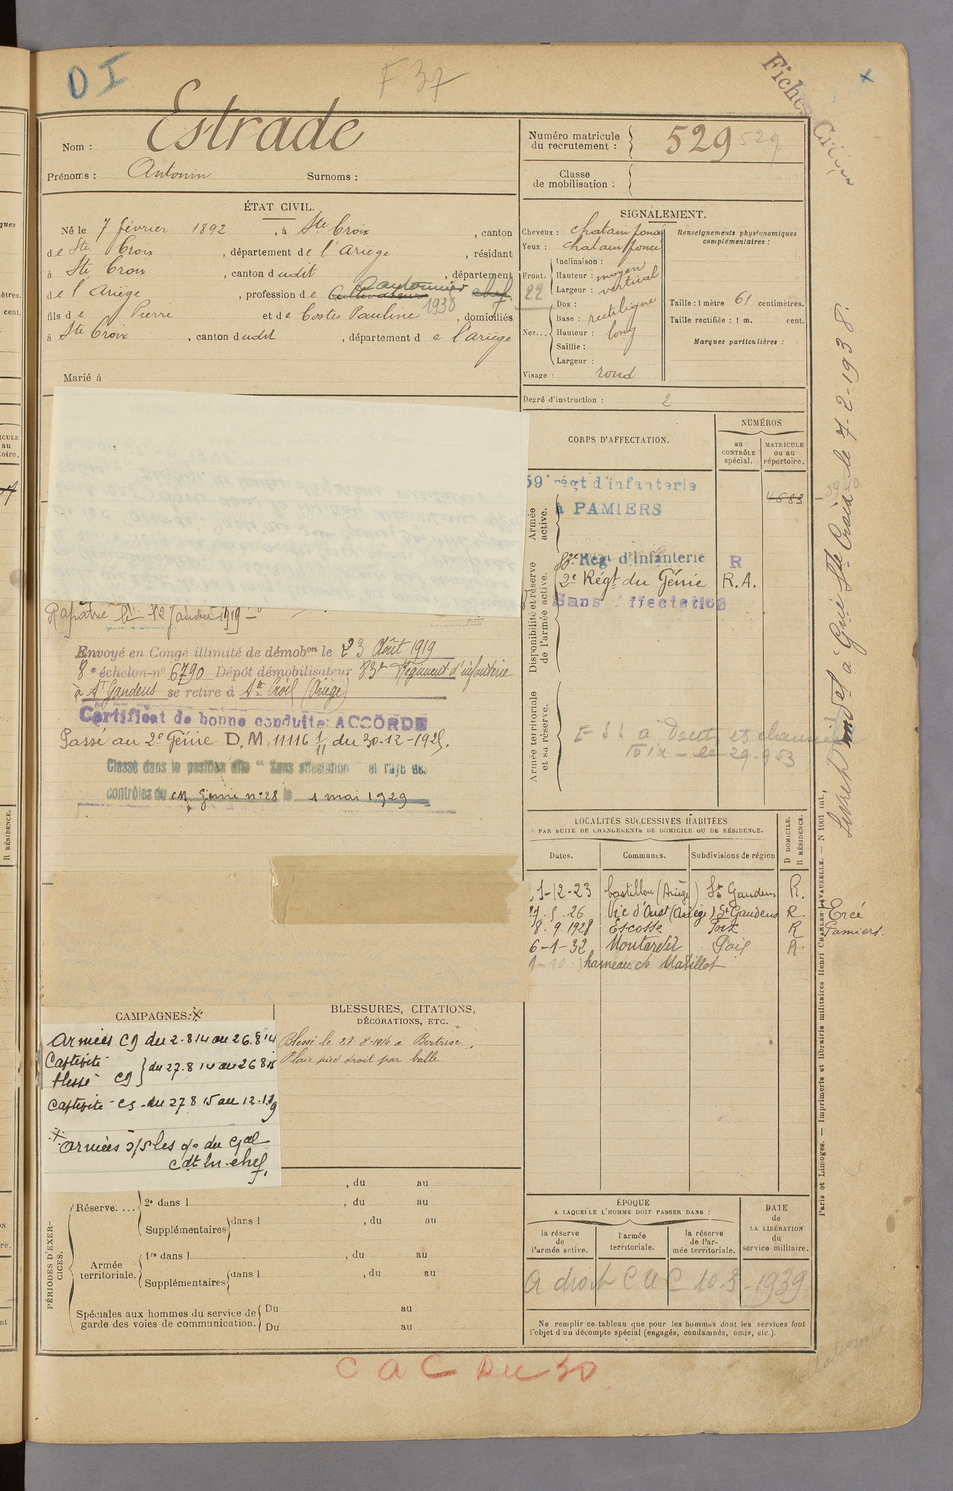 DI
F 37
Fiche
Nom : Estrade
Prénoms : Antonin Surnoms :
Numéro matricule du recrutement : 529 529
Classe de mobilisation :
ÉTAT CIVIL.
Né le 7 février 1892, à Ste Croix, canton
de Ste Croix, département de l'Ariège, résidant
à Ste Croix, canton dudit, département
de l'Ariège, profession de cultivateur cantonnier chef
1938
fils de Pierre et de Costes Pauline, domiciliés
à Ste Croix, canton dudit, département de l'ariège
Marié à
SIGNALEMENT.
Cheveux : chatain foncé
Yeux : chatain foncé
Front. 22
Inclinaison :
Hauteur : moyen
Largeur : vertical
Nez...
Dos :
Base : rectiligne
Hauteur : long
Saillie :
Largeur :
Visage : rond
Renseignements physionomiques complémentaires :
Taille : 1 mètre 61 centimètres.
Taille rectifiée : 1 m. cent.
Marques particulières :
Degré d'instruction : 2
CORPS D'AFFECTATION.
NUMÉROS
au CONTRÔLE spécial.
MATRICULE ou au répertoire.
Armée active.
59e régt d'infanterie
à PAMIERS
4683
Disponibilité et réserve de l'armée active.
83e Rég d'Infanterie R
2e Régt du Génie R.A.
Sans affectation
Armée territoriale et sa réserve.
Foix - le 29-9 53
Rapatrié le 12 Janvier 1919
Envoyé en Congé illimité de démobon le 23 Août 1919
8e échelon-no 6790 Dépôt démobilisateur 83e Régiment d'infanterie
à St Gaudens se retire à Ste Croix (Ariège)
Certificat de bonne conduite ACCORDÉ
Passé au 2e Génie D.M. 11116 1/11 du 30-12-1925.
Classé dans la position dite "Sans affectation" et rayé des
contrôles du CM Génie no 28 le 1 mai 1929
LOCALITÉS SUCCESSIVES HABITÉES
PAR SUITE DE CHANGEMENTS DE DOMICILE OU DE RÉSIDENCE.
Dates. Communes. Subdivisions de région D DOMICILE. R RÉSIDENCE.
1-12-23 Castillon (Ariège) St Gaudens R.
27.5.26 Vic d'Oust (Ariège) St Gaudens R Ercé
8.9.1928 Escosse Foix R Pamiers.
6-1-32 Montardit Foix R
hameau de Matillot
CAMPAGNES : X
Armées CG du 2.8 14 au 26.8 14
Captivité blessé CG du 27.8 14 au 26 8 15
Captivité - CS - du 27 8 15 au 12.1.19
X Armées s/s les o/o du Gal
Cdt en chef,
BLESSURES, CITATIONS,
DÉCORATIONS, ETC.
Blessé le 27-8-1914 à Bertrix.
Plaie pied droit par balle
PÉRIODES D'EXERCICES.
Réserve....
2e dans l , du au
Supplémentaires dans l , du au
Armée territoriale.
1re dans l , du au
Supplémentaires dans l , du au
Spéciales aux hommes du service de garde des voies de communication.
Du au
Du au
ÉPOQUE
A LAQUELLE L'HOMME DOIT PASSER DANS :
la réserve de l'armée active.
l'armée territoriale.
la réserve de l'armée territoriale.
DATE de LA LIBÉRATION du service militaire.
A droit C A C 10-3-1939
Ne remplir ce tableau que pour les hommes dont les services font
l'objet d'un décompte spécial (engagés, condamnés, omis, etc.).
C A C Du 30
Paris et Limoges. — Imprimerie et librairie militaires Henri CHARLES-LAVAUZELLE. — N 1001 int.
Ste Croix le 7-2-1938.